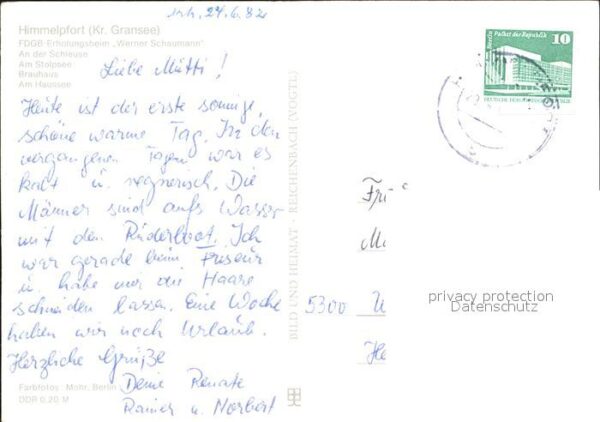 24.6.82
Himmelpfort (Kr. Gransee)
FDGB-Erholungsheim „Werner Schaumann"
An der Schleuse
Am Stolpsee
Brauhaus
Am Haussee
Liebe Mutti!
Heute ist der erste sonnige,
schöne warme Tag. In den
vergangenen Tagen war es
kalt u. regnerisch. Die
Männer sind aufs Wasser
mit dem Ruderboot. Ich
war gerade beim Friseur
u. habe mir die Haare
schneiden lassen. Eine Woche
haben wir noch Urlaub.
Herzliche Grüße
Deine Renate
Rainer u. Norbert
Farbfotos Mohr, Berlin
DDR 0,20 M
BILD UND HEIMAT · REICHENBACH (VOGTL)
Berlin, Palast der Republik
10
DEUTSCHE DEMOKRATISCHE REPUBLIK
5300
privacy protection
Datenschutz